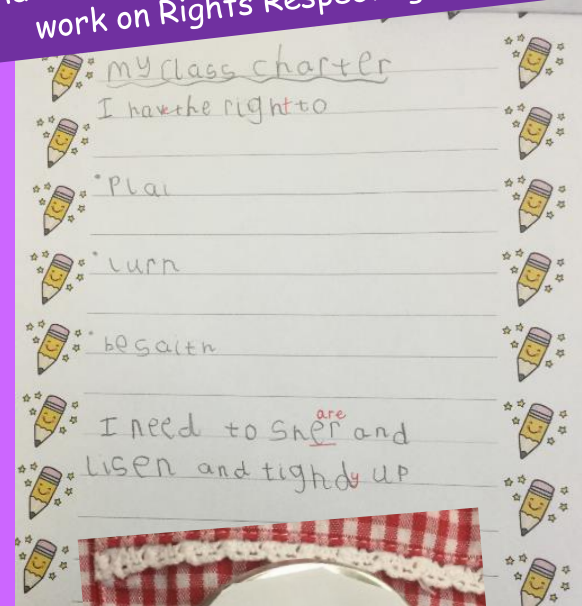 work on Rights Respecting
my class charter
I have the right to
• Plai
• lurn
• be saith
are
I need to sher and
Lisen and tighdy up